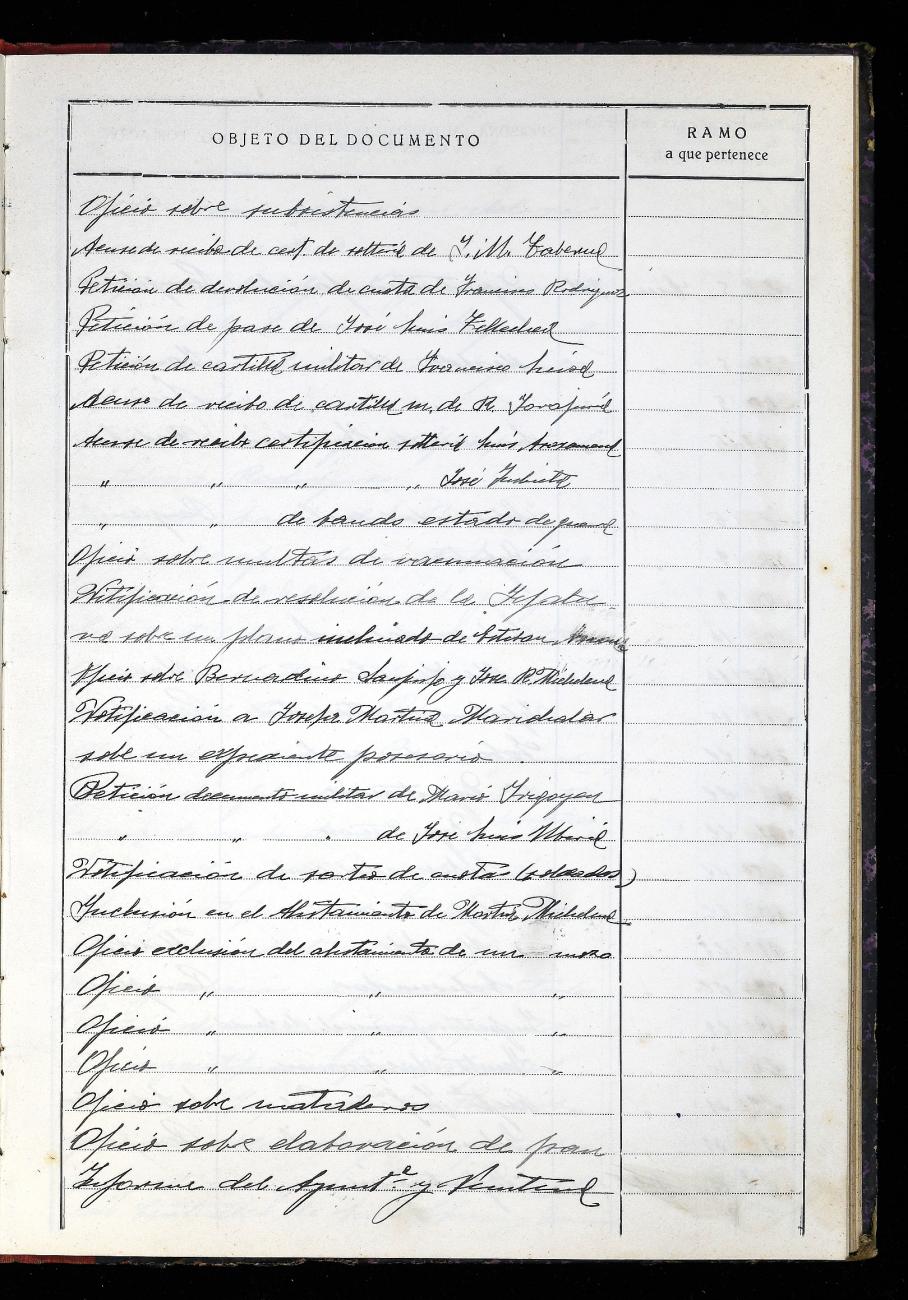 OBJETO DEL DOCUMENTO
RAMO
a que pertenece
Oficio sobre subsistencias
Acuse de recibo de cert. de soltería de J. M. Taberna
Petición de devolución de cuota de Francisco Rodriguez
Petición de pase de José Luis Tellechea
Petición de cartilla militar de Francisco
Acuse de recibo de cartilla m. de R.
Acuse de recibo certificación soltería Luis
" " " " José Iturbide
" " de bando estado de guerra
Oficio sobre multas de vacunación
Notificación de resolución de la Jefatu-
ra sobre un plano inclinado de Esteban
Oficio sobre Bernardino y José R. Michelena
Notificación a Josefa Martina Marichalar
sobe un expediente posesorio
Petición documento militar de Mario Irigoyen
" " " de José Luis Ubiría
Notificación de sorteo de cuotas (soldados)
Inclusión en el Alistamiento de Martin Michelena
Oficio exclusión del alistamiento de un mozo
Oficio " " "
Oficio " " "
Oficio " " "
Oficio sobe mataderos
Oficio sobre elaboración de pan
Informe del Ayunt.º y